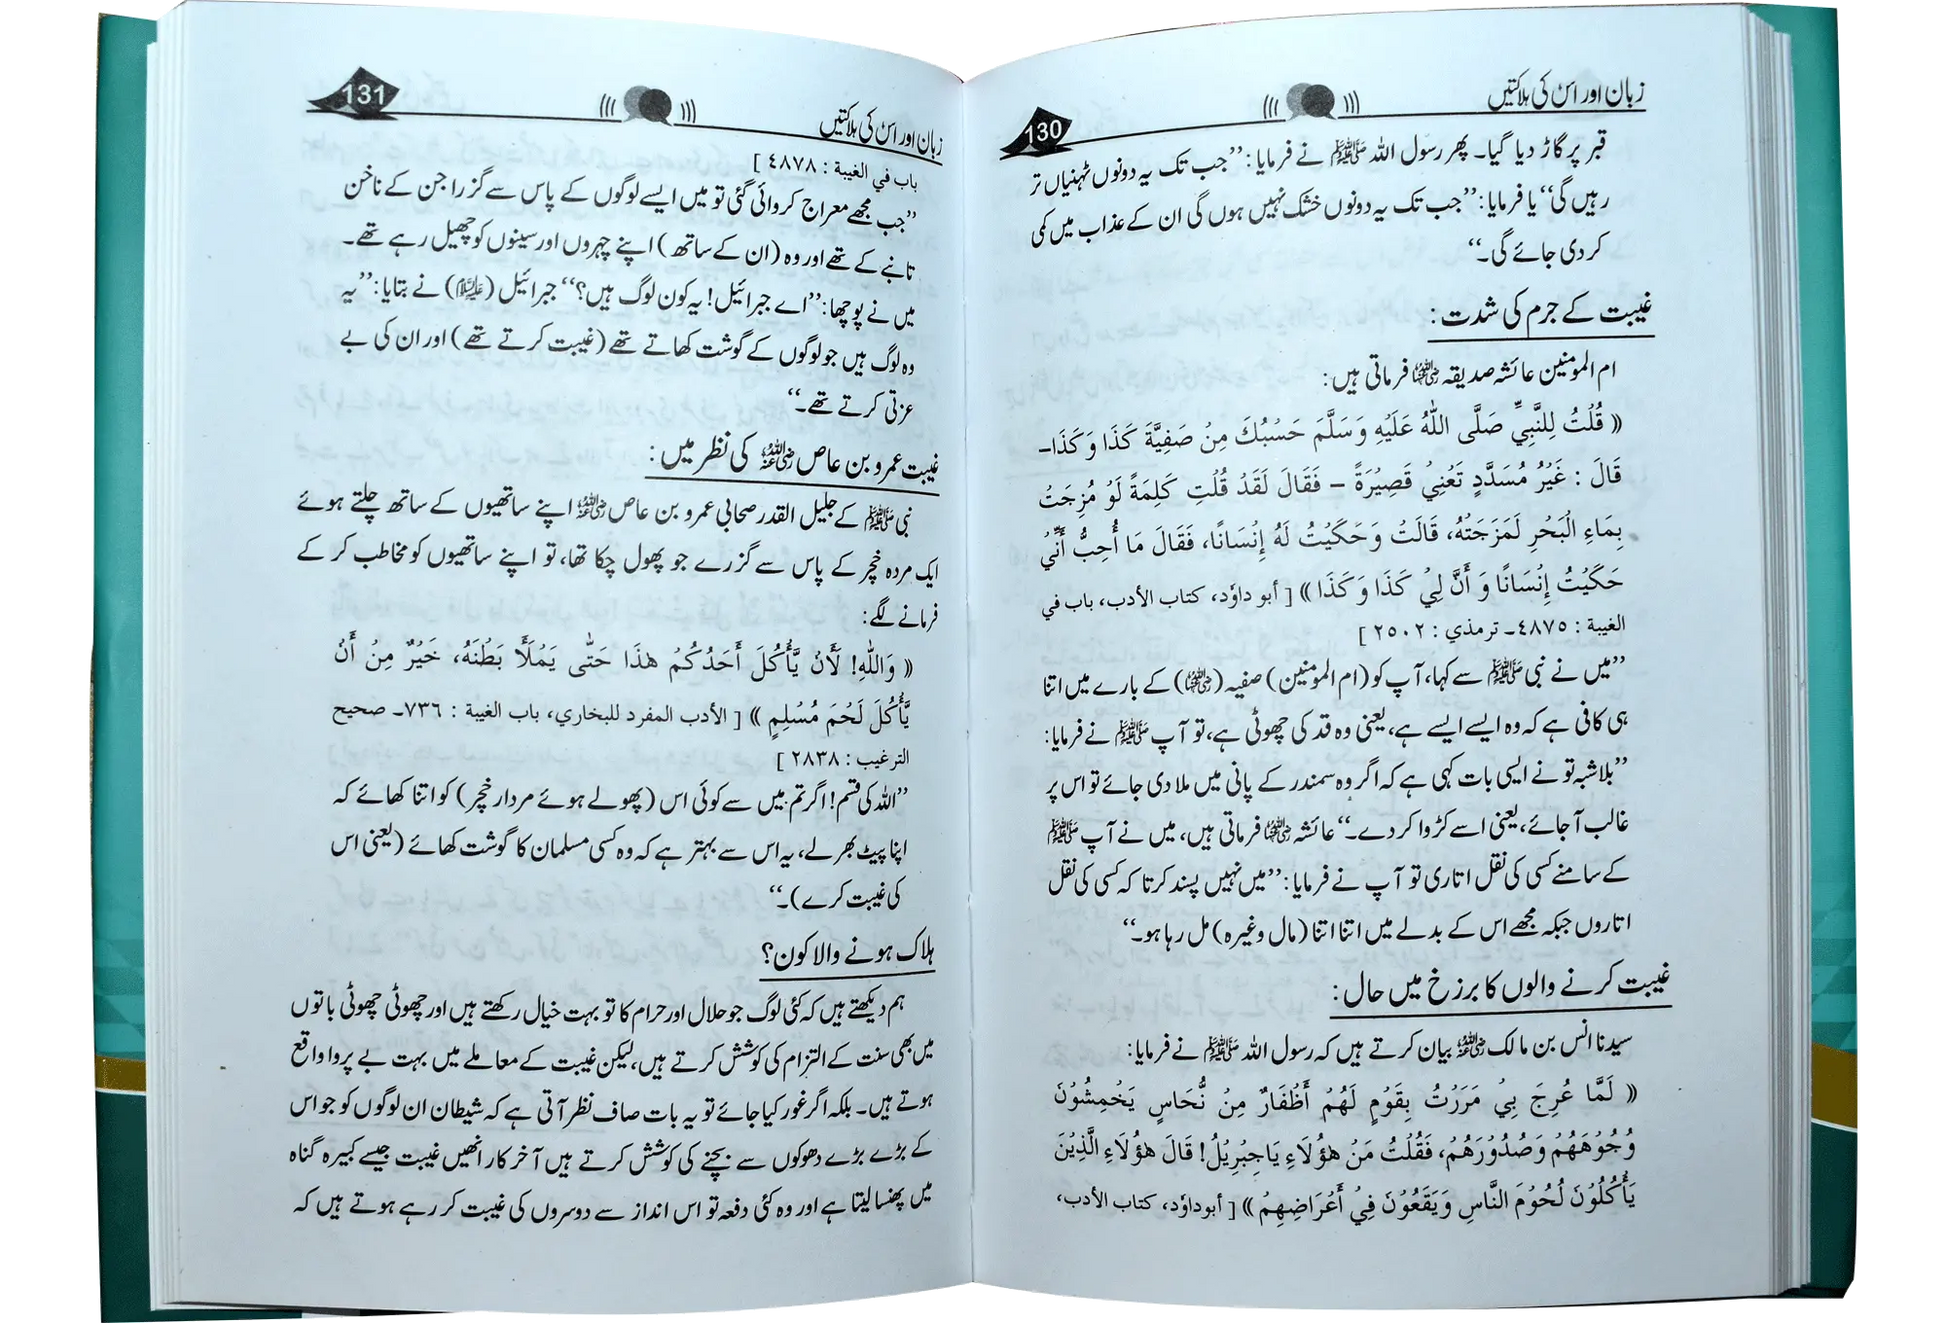 زبان اور اس کی ہلاکتیں
130
قبر پر گاڑ دیا گیا۔ پھر رسول اللہ ﷺ نے فرمایا: ’’جب تک یہ دونوں ٹہنیاں تر
رہیں گی‘‘ یا فرمایا: ’’جب تک یہ دونوں خشک نہیں ہوں گی ان کے عذاب میں کمی
کر دی جائے گی۔‘‘
غیبت کے جرم کی شدت:
ام المومنین عائشہ صدیقہ رضی اللہ عنہا فرماتی ہیں:
(( قُلْتُ لِلنَّبِيِّ صَلَّى اللّٰهُ عَلَيْهِ وَسَلَّمَ حَسْبُكَ مِنْ صَفِيَّةَ كَذَا وَ كَذَا–
قَالَ : غَيْرُ مُسَدَّدٍ تَعْنِيْ قَصِيْرَةً – فَقَالَ لَقَدْ قُلْتِ كَلِمَةً لَوْ مُزِجَتْ
بِمَاءِ الْبَحْرِ لَمَزَجَتْهُ، قَالَتْ وَحَكَيْتُ لَهُ إِنْسَانًا، فَقَالَ مَا أُحِبُّ أَنِّيْ
حَكَيْتُ إِنْسَانًا وَ أَنَّ لِيْ كَذَا وَ كَذَا )) [ أبو داوٗد، کتاب الأدب، باب في
الغيبة : ٤٨٧٥۔ ترمذي : ٢٥٠٢ ]
’’میں نے نبی ﷺ سے کہا، آپ کو (ام المومنین) صفیہ (رضی اللہ عنہا) کے بارے میں اتنا
ہی کافی ہے کہ وہ ایسے ایسے ہے، یعنی وہ قد کی چھوٹی ہے، تو آپ ﷺ نے فرمایا:
’’بلاشبہ تو نے ایسی بات کہی ہے کہ اگر وہ سمندر کے پانی میں ملا دی جائے تو اس پر
غالب آ جائے، یعنی اسے کڑوا کر دے۔‘‘ عائشہ رضی اللہ عنہا فرماتی ہیں، میں نے آپ ﷺ
کے سامنے کسی کی نقل اتاری تو آپ نے فرمایا: ’’میں نہیں پسند کرتا کہ کسی کی نقل
اتاروں جبکہ مجھے اس کے بدلے میں اتنا اتنا (مال وغیرہ) مل رہا ہو۔‘‘
غیبت کرنے والوں کا برزخ میں حال:
سیدنا انس بن مالک رضی اللہ عنہ بیان کرتے ہیں کہ رسول اللہ ﷺ نے فرمایا:
(( لَمَّا عُرِجَ بِيْ مَرَرْتُ بِقَوْمٍ لَهُمْ أَظْفَارٌ مِنْ نُّحَاسٍ يَخْمِشُوْنَ
وُجُوْهَهُمْ وَصُدُوْرَهُمْ، فَقُلْتُ مَنْ هٰؤُلَاءِ يَا جِبْرِيْلُ! قَالَ هٰؤُلَاءِ الَّذِيْنَ
يَأْكُلُوْنَ لُحُوْمَ النَّاسِ وَيَقَعُوْنَ فِيْ أَعْرَاضِهِمْ )) [ أبوداوٗد، كتاب الأدب،
زبان اور اس کی ہلاکتیں
131
باب في الغيبة : ٤٨٧٨ ]
’’جب مجھے معراج کروائی گئی تو میں ایسے لوگوں کے پاس سے گزرا جن کے ناخن
تانبے کے تھے اور وہ (ان کے ساتھ) اپنے چہروں اور سینوں کو چھیل رہے تھے۔
میں نے پوچھا: ’’اے جبرائیل! یہ کون لوگ ہیں؟‘‘ جبرائیل (علیہ السلام) نے بتایا: ’’یہ
وہ لوگ ہیں جو لوگوں کے گوشت کھاتے تھے (غیبت کرتے تھے) اور ان کی بے
عزتی کرتے تھے۔‘‘
غیبت عمرو بن عاص رضی اللہ عنہ کی نظر میں:
نبی ﷺ کے جلیل القدر صحابی عمرو بن عاص رضی اللہ عنہ اپنے ساتھیوں کے ساتھ چلتے ہوئے
ایک مردہ خچر کے پاس سے گزرے جو پھول چکا تھا، تو اپنے ساتھیوں کو مخاطب کر کے
فرمانے لگے:
(( وَاللّٰهِ! لَأَنْ يَّأْكُلَ أَحَدُكُمْ هٰذَا حَتّٰى يَمْلَأَ بَطْنَهُ، خَيْرٌ مِنْ أَنْ
يَّأْكُلَ لَحْمَ مُسْلِمٍ )) [ الأدب المفرد للبخاري، باب الغيبة : ٧٣٦۔ صحيح
الترغيب : ٢٨٣٨ ]
’’اللہ کی قسم! اگر تم میں سے کوئی اس (پھولے ہوئے مردار خچر) کو اتنا کھائے کہ
اپنا پیٹ بھر لے، یہ اس سے بہتر ہے کہ وہ کسی مسلمان کا گوشت کھائے (یعنی اس
کی غیبت کرے)۔‘‘
ہلاک ہونے والا کون؟
ہم دیکھتے ہیں کہ کئی لوگ جو حلال اور حرام کا تو بہت خیال رکھتے ہیں اور چھوٹی چھوٹی باتوں
میں بھی سنت کے التزام کی کوشش کرتے ہیں، لیکن غیبت کے معاملے میں بہت بے پروا واقع
ہوتے ہیں۔ بلکہ اگر غور کیا جائے تو یہ بات صاف نظر آتی ہے کہ شیطان ان لوگوں کو جو اس
کے بڑے بڑے دھوکوں سے بچنے کی کوشش کرتے ہیں آخر کار انھیں غیبت جیسے کبیرہ گناہ
میں پھنسا لیتا ہے اور وہ کئی دفعہ تو اس انداز سے دوسروں کی غیبت کر رہے ہوتے ہیں کہ